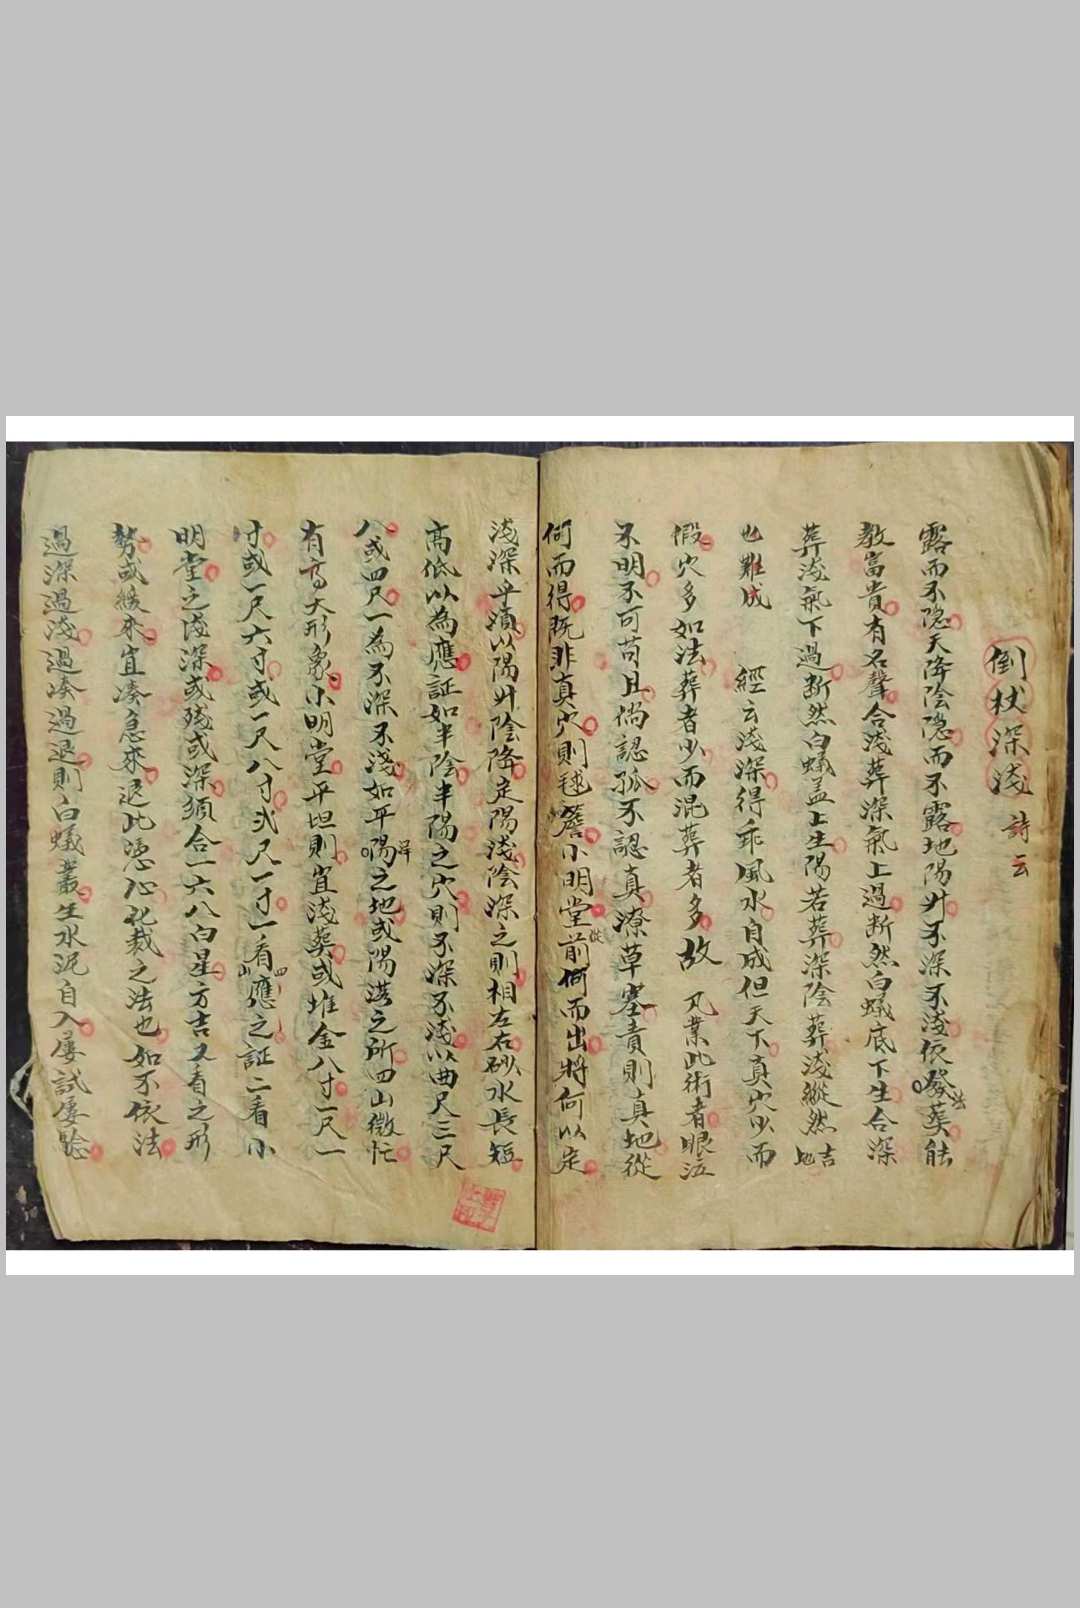 倒杖深淺 詩云
露而不隐天降陰隐而不露地陽升不深不淺依法葬能
教富貴有名聲合淺葬深氣上過断然白蟻底下生合深
葬淺氣下過断然白蟻盖上生陽若葬深陰葬淺縱然吉地
也難成 經云淺深得乖風水自成但天下真穴少而
假穴多如法葬者少而混葬者多故 凡業此術者眼泣
不明不可苟且倘認孤不認真潦草塞責則真地從
何而得既非真穴則毬簷小明堂前從何而出將何以定
淺深乎須以陽升陰降定陽淺陰深之則相左右砂水長短
高低以為應証如半陰半陽之穴則不深不淺以曲尺三尺
八或四尺一為不深不淺如平洋之地或陽落之所四山微忙
有高大形象小明堂平坦則宜淺葬或堆金八寸一尺一
寸或一尺六寸或一尺八寸弍尺一寸一看四山應之証二看小
明堂之淺深或残或深須合一六八白星方吉又看之形
势或緩來宜凑急來退此憑心裁之法也如不依法
過深過淺過凑過退則白蟻叢生水泥自入屡試屡驗